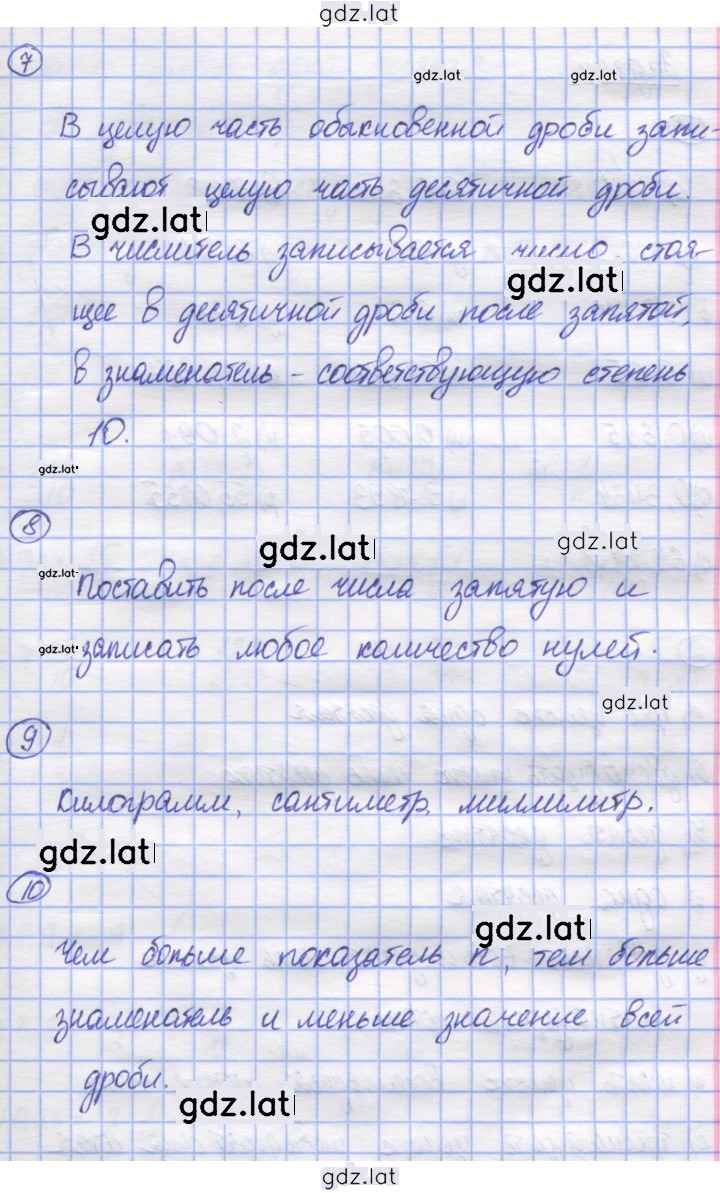 gdz.lat
7
gdz.lat gdz.lat
В целую часть обыкновенной дроби запи-
сывают целую часть десятичной дроби.
gdz.lat
В числитель записывается число стоя-
gdz.lat
щее в десятичной дроби после запятой,
в знаменатель - соответствующую степень
10.
gdz.lat
8
gdz.lat gdz.lat
gdz.lat
Поставить после числа запятую и
gdz.lat
записать любое количество нулей.
gdz.lat
9
Килограмм, сантиметр, миллилитр.
gdz.lat
10
gdz.lat
Чем больше показатель n, тем больше
знаменатель и меньше значение всей
дроби.
gdz.lat
gdz.lat